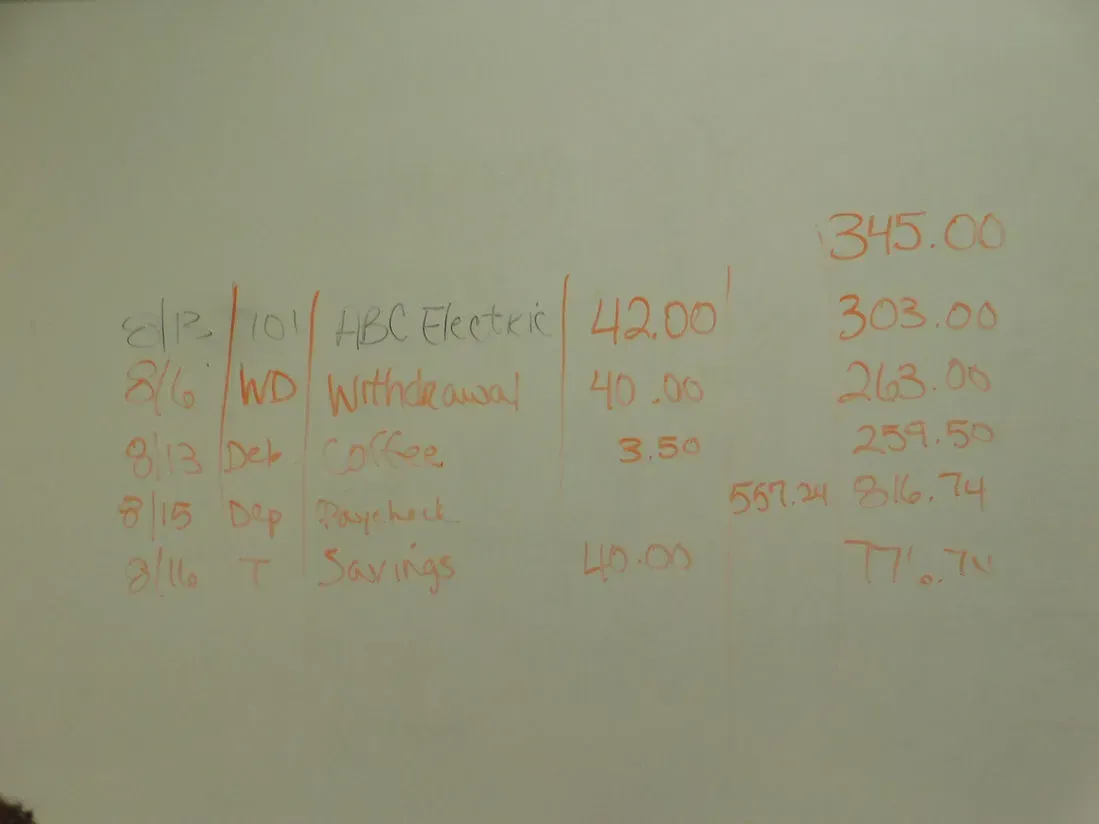 345.00
8/13 101 ABC Electric 42.00 303.00
8/6 WD Withdrawal 40.00 263.00
8/13 Deb Coffee 3.50 259.50
8/15 Dep Paycheck 557.24 816.74
8/16 T Savings 40.00 776.74